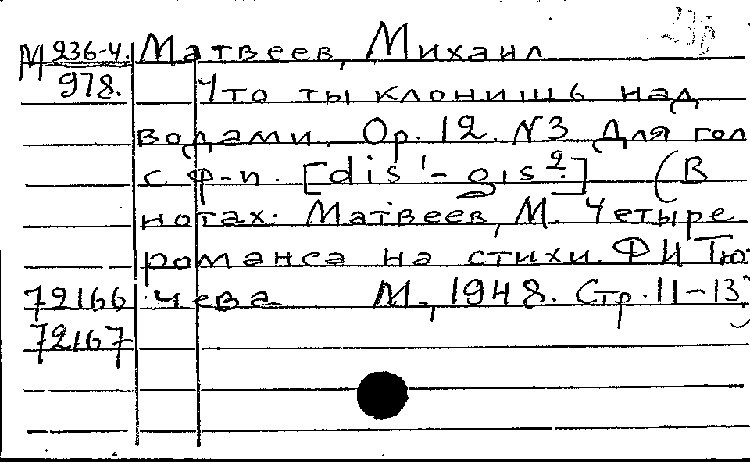 М 236-4. Матвеев, Михаил
978. Что ты клонишь над
водами. Ор. 12. N3 Для гол
с ф-п. [dis¹-gis²] (В
нотах: Матвеев, М. Четыре
романса на стихи Ф И Тют
72166 чева М., 1948. Стр. 11-13)
72167